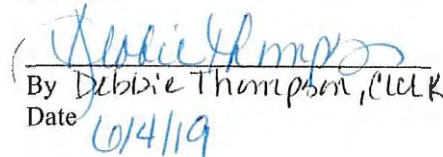 Debbie Thompson
By Debbie Thompson, Clerk
Date 6/4/19